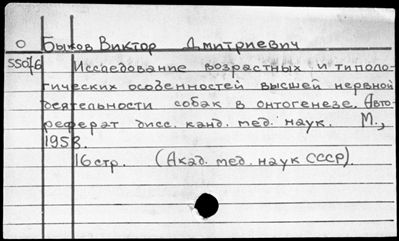 О Быков Виктор Дмитриевич
55076 Исследование возрастных и типоло-
гических особенностей высшей нервной
деятельности собак в онтогенезе. Авто-
реферат дисс. канд. мед. наук. М.,
1958.
16 стр. (Акад. мед. наук СССР).